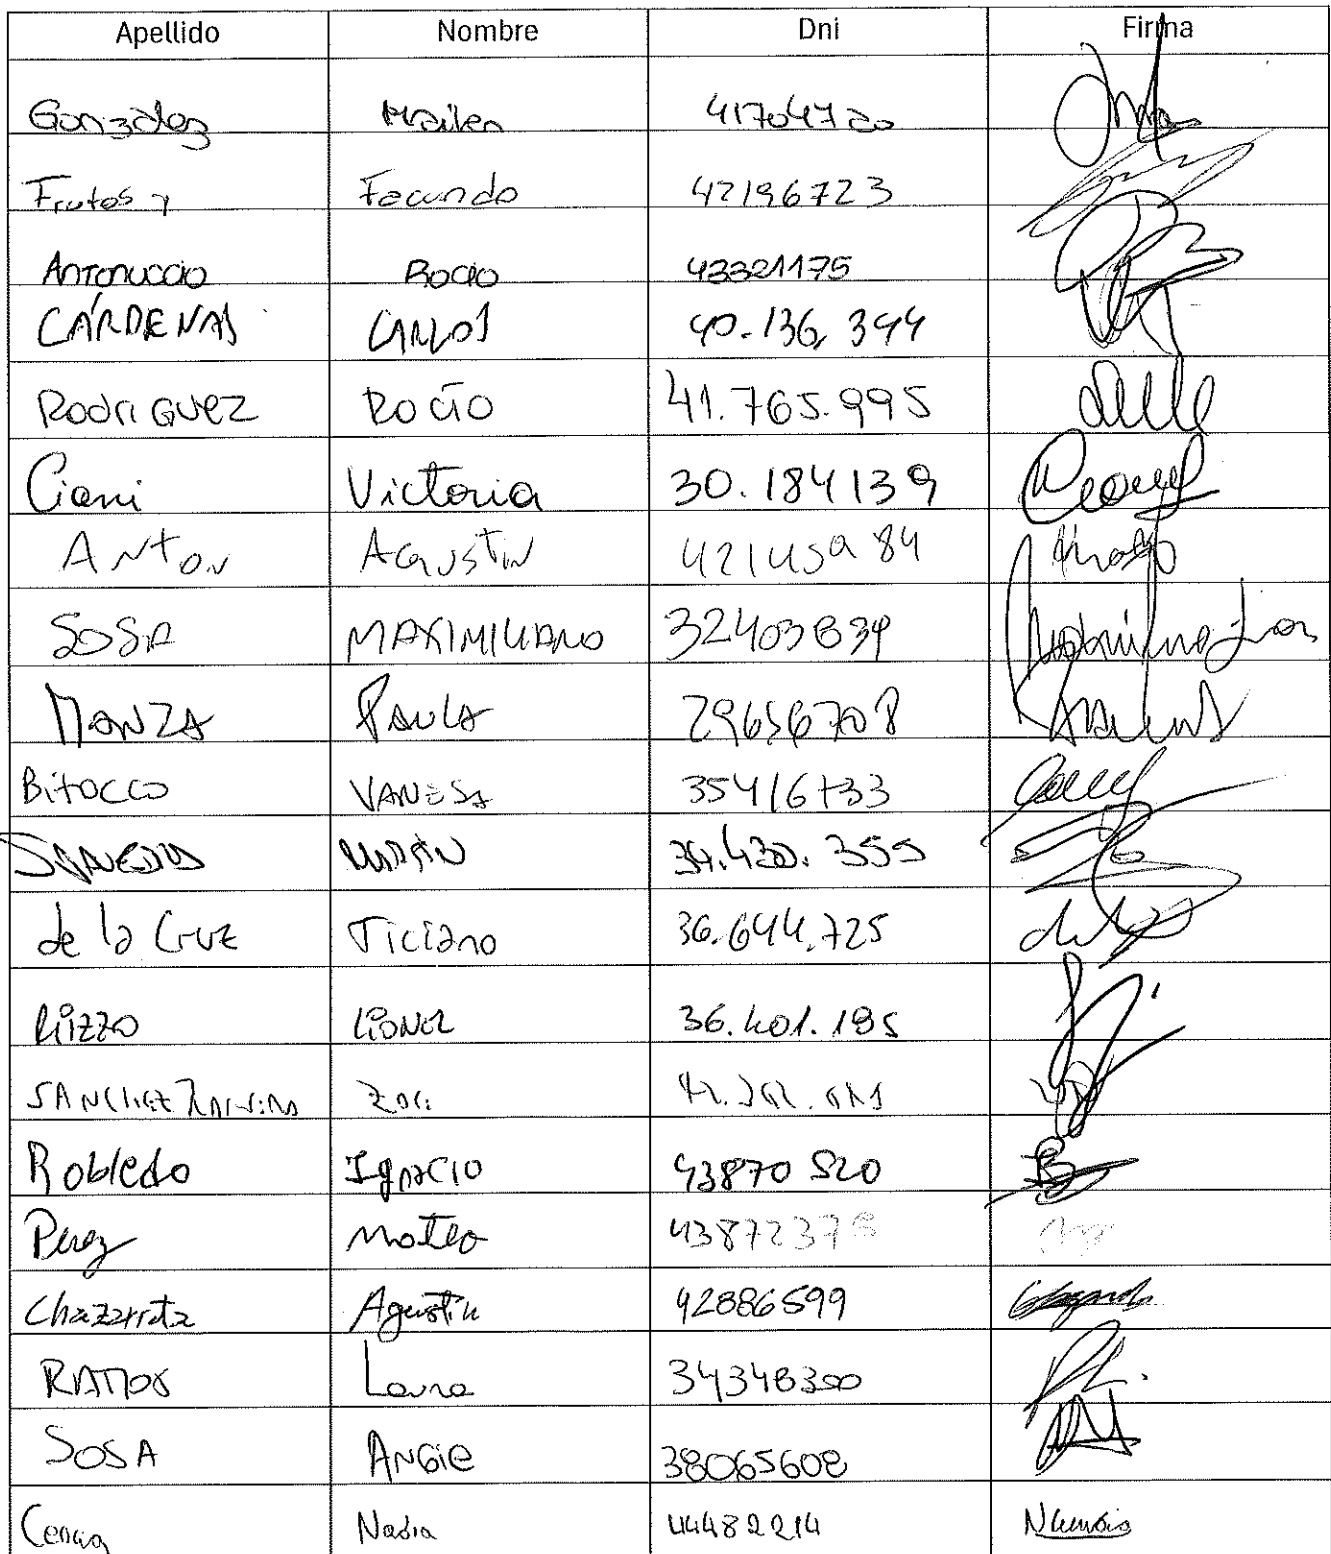 Apellido Nombre Dni Firma
Gonzalez Mailen 41704720
Frutos Facundo 42196723
Antonuccio Rocio 43321175
CÁRDENAS CARLOS 40.136.344
Rodriguez Rocío 41.765.995
Ciani Victoria 30.184139
Anton Agustin 42145984
SOSA MAXIMILIANO 32403834
MANZA PAULA 29656708
Bitocco VANESA 35416733
34.430.355
de la Cruz Ticiano 36.644.725
Rizzo Lionel 36.401.195
SANCHEZ
Robledo Ignacio 43870520
Perez Mateo 43872378
Chazarreta Agustin 42886599
RAMOS Laura 34348300
SOSA ANGIE 38065608
Nadia 44482214